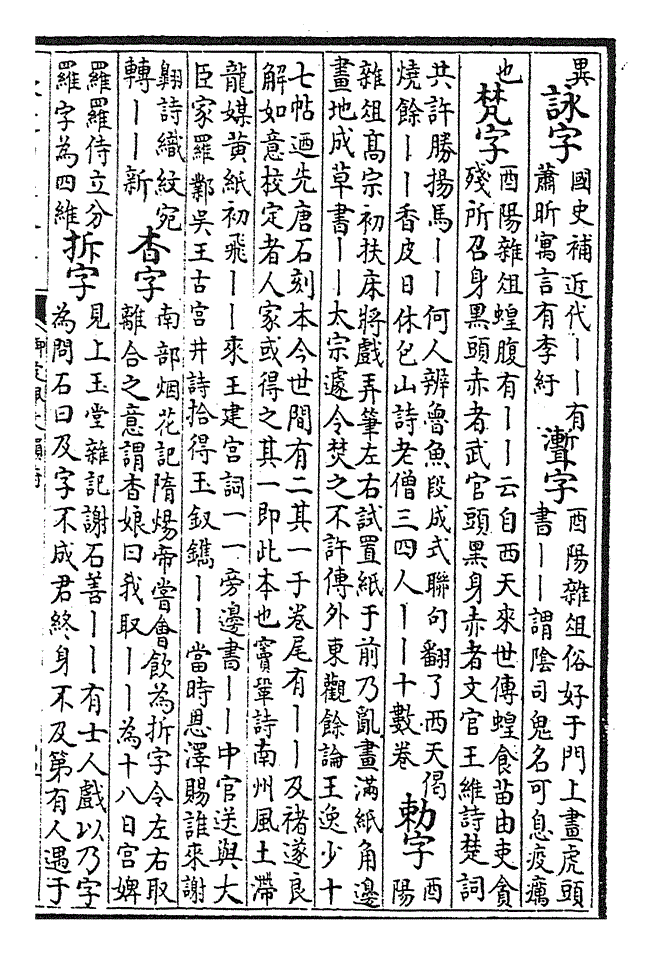 異
詠字
國史補近代丨丨有
蕭昕寓言有李紆
聻字
酉陽雜俎俗好于門上畫虎頭
書丨丨謂陰司鬼名可息疫癘
也
梵字
酉陽雜俎蝗腹有丨丨云自西天來世傳蝗食苗由吏貪
殘所召身黒頭赤者武官頭黒身赤者文官王維詩楚詞
共許勝揚馬丨丨何人辨魯魚段成式聯句翻了西天偈
燒餘丨丨香皮日休包山詩老僧三四人丨丨十數卷
勅字
酉
陽
雜俎髙宗初扶床將戲弄筆左右試置紙于前乃亂畫滿紙角邊
畫地成草書丨丨太宗遽令焚之不許傳外東觀餘論王逸少十
七帖廼先唐石刻本今世間有二其一于卷尾有丨丨及褚遂良
解如意校定者人家或得之其一即此本也竇鞏詩南州風土滯
龍媒黄紙初飛丨丨來王建宫詞一一旁邊書丨丨中官送與大
臣家羅鄴吳王古宫井詩拾得玉釵鐫丨丨當時恩澤賜誰來謝
翺詩織紋宛
轉丨丨新
杳字
南部烟花記隋煬帝嘗會飲為拆字令左右取
離合之意謂杳娘曰我取丨丨為十八日宫婢
羅羅侍立分
羅字為四維
拆字
見上玉堂雜記謝石善丨丨有士人戲以乃字
為問石曰及字不成君終身不及第有人遇于